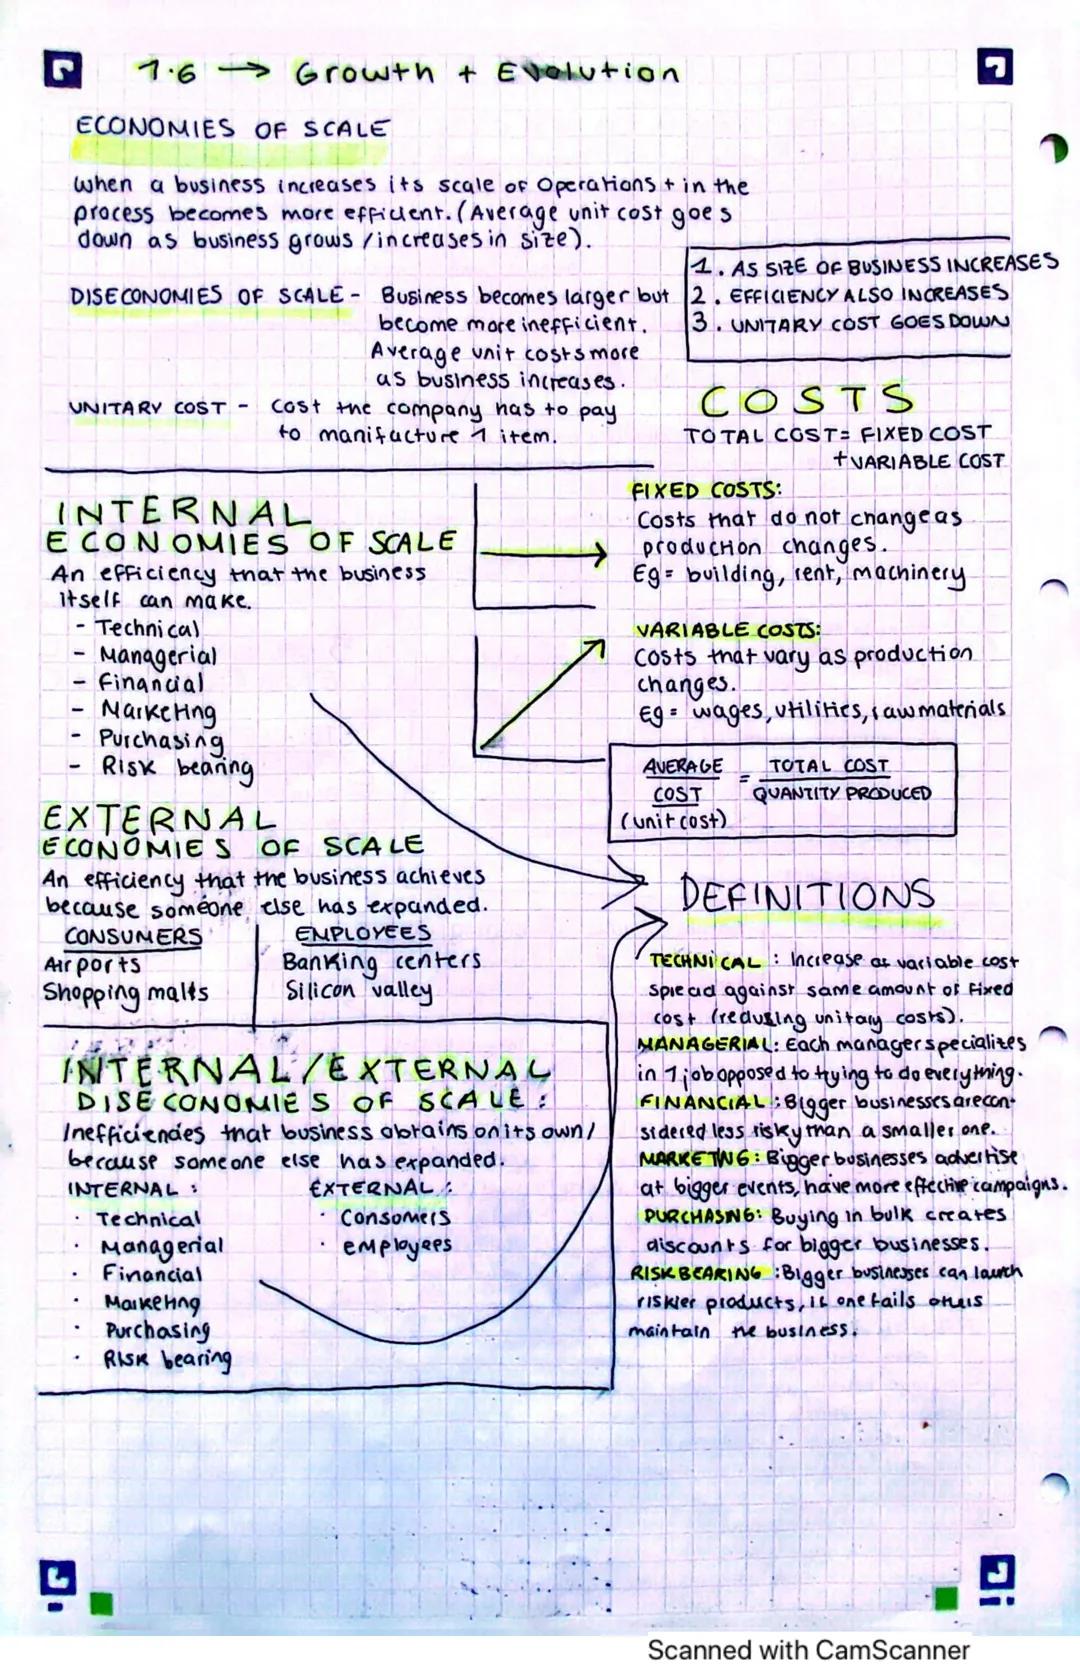 1.6 → Growth + Evolution
ECONOMIES OF SCALE
When a business increases its scale of operations + in the
process becomes more efficient. (Average unit cost goes
down as business grows /increases in size).
1. AS SIZE OF BUSINESS INCREASES
2. EFFICIENCY ALSO INCREASES
3. UNITARY COST GOES DOWN
DISECONOMIES OF SCALE - Business becomes larger but
become more inefficient.
Average unit costs more
as business increases.
UNITARY COST - Cost the company has to pay
to manifacture 1 item.
COSTS
TOTAL COST = FIXED COST
+ VARIABLE COST
FIXED COSTS:
Costs that do not change as
production changes.
Eg = building, rent, machinery
VARIABLE COSTS:
Costs that vary as production
changes.
Eg = wages, utilities, raw materials
AVERAGE COST (unit cost) = TOTAL COST / QUANTITY PRODUCED
INTERNAL
ECONOMIES OF SCALE
An efficiency that the business
itself can make.
- Technical
- Managerial
- Financial
- Marketing
- Purchasing
- Risk bearing
EXTERNAL
ECONOMIES OF SCALE
An efficiency that the business achieves
because someone else has expanded.
CONSUMERS
Airports
Shopping malls
EMPLOYEES
Banking centers
Silicon valley
INTERNAL/EXTERNAL
DISECONOMIES OF SCALE:
Inefficiencies that business obtains on its own/
because someone else has expanded.
INTERNAL:
· Technical
· Managerial
· Financial
· Marketing
· Purchasing
· Risk bearing
EXTERNAL:
· Consomers
· employees
DEFINITIONS
TECHNICAL: Increase at variable cost
spread against same amount of fixed
cost (redusing unitary costs).
MANAGERIAL: Each manager specializes
in 1 job opposed to trying to do everything.
FINANCIAL: Bigger businesses are con-
sidered less risky than a smaller one.
MARKETING: Bigger businesses advertise
at bigger events, have more effective campaigns.
PURCHASNG: Buying in bulk creates
discounts for bigger businesses.
RISK BEARING: Bigger businesses can launch
riskier products, if one fails others
maintain the business.
Scanned with CamScanner